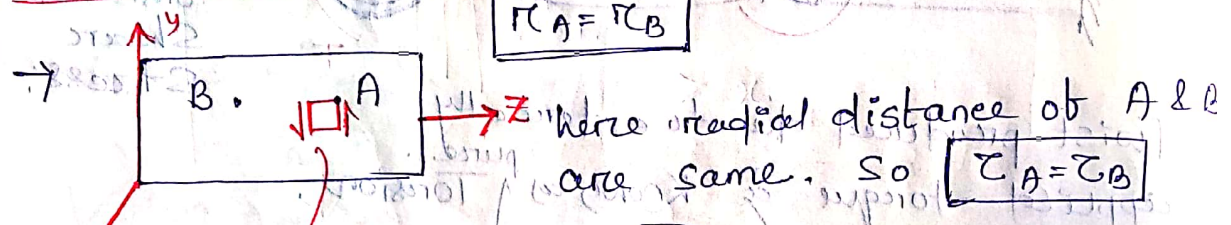 r A = r B
y
→ B . A
z here radial distance of A & B
are same. So τ A = τ B